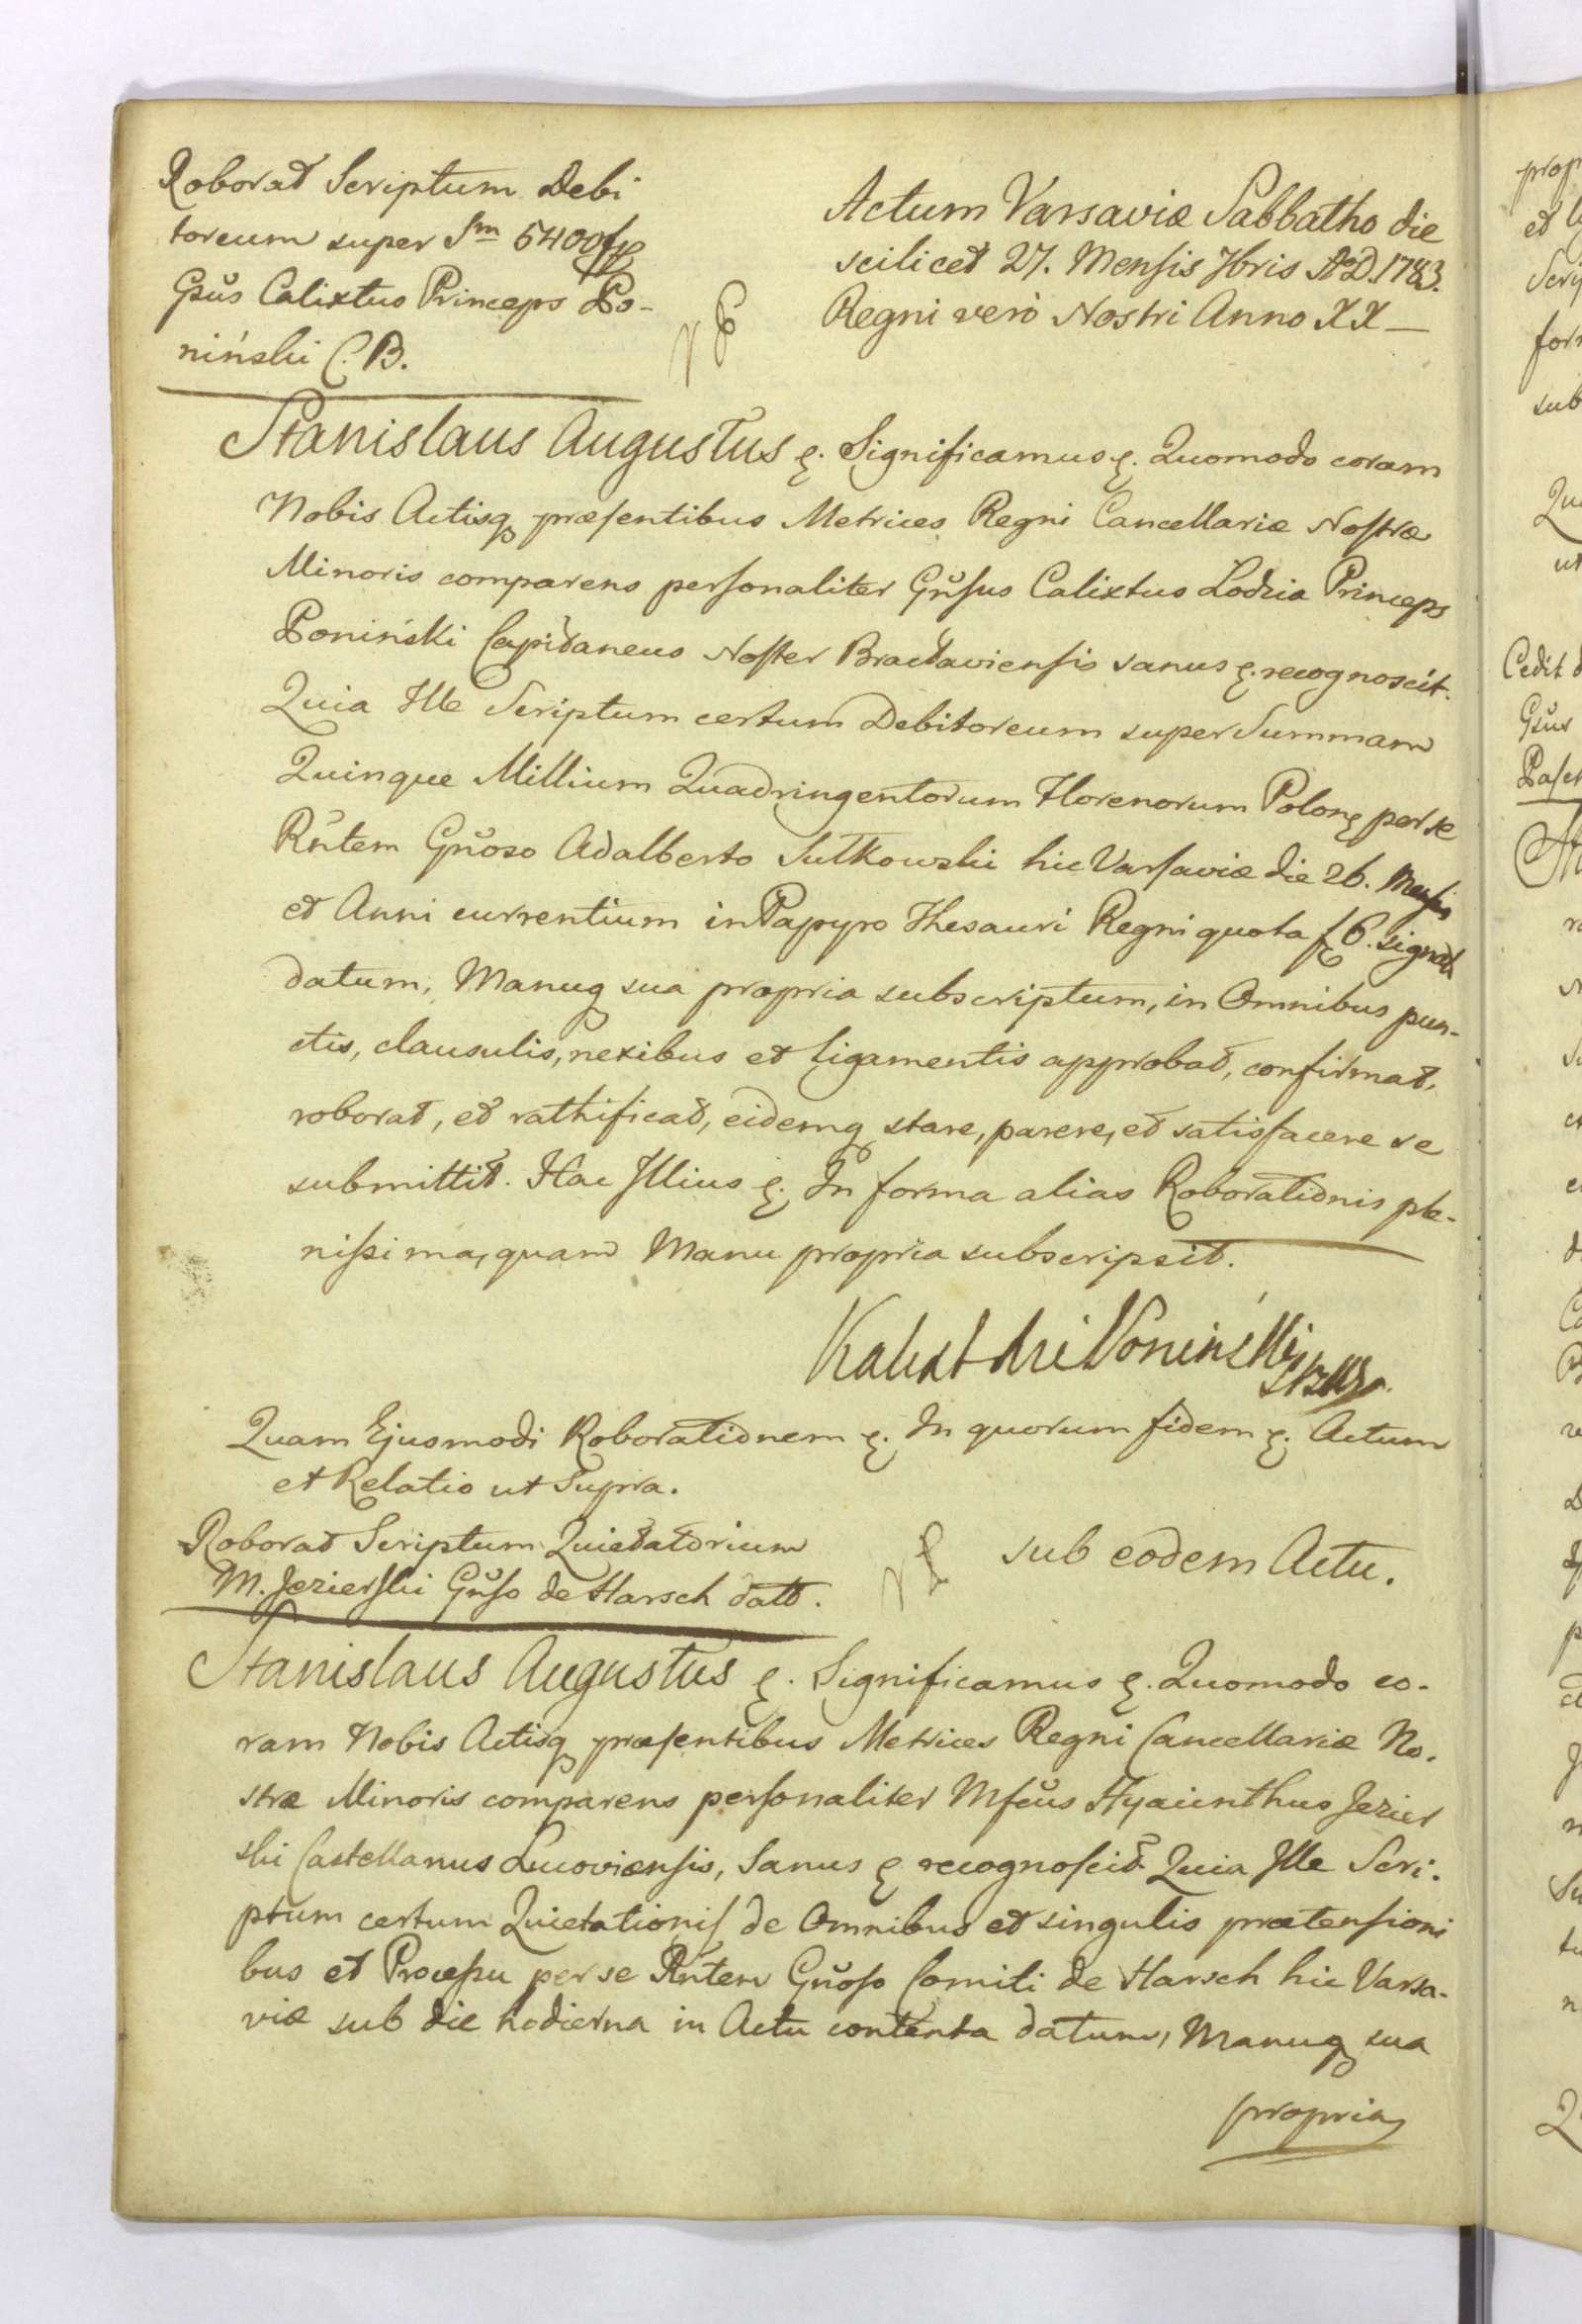 Roborat Scriptum Debi
toreum super Sm 5400 fp
Gsus Calixtus Princeps Po-
niński C. B.
Actum Varsaviæ Sabbatho die
scilicet 27. Mensis 7bris A.D. 1783.
Regni vero Nostri Anno XX
Stanislaus Augustus &. Significamus &. Quomodo coram
Nobis Actisq præsentibus Metrices Regni Cancellariæ Nostræ
Minoris comparens personaliter Gnsus Calixtus Lodzia Princeps
Poniński Capitaneus Noster Bractaviensis sanus &. recognoscit.
Quia Ille Scriptum certum Debitoreum super Summam
Quinque Millium Quadringentorum Florenorum Polon& per se
Rntem Gnoso Adalberto Sutkowski hic Varsaviæ die 26. Mensis
et Anni currentium in Papyro Thesauri Regni quota f 6. signat
datum, Manuq sua propria subscriptum, in Omnibus pun-
ctis, clausulis, nexibus et ligamentis approbat, confirmat,
roborat, et rathificat, eidemq stare, parere, et satisfacere se
submittit. Hac Illius &. In forma alias Roborationis ple-
nissima, quam Manu propria subscripsit.
Kalixt Poniński
Quam Ejusmodi Roborationem &. In quorum fidem &. Actum
et Relatio ut Supra.
Roborat Scriptum Quietatorium
M. Jezierski Gnso de Harsch datt.
sub eodem Actu.
Stanislaus Augustus &. Significamus &. Quomodo co-
ram Nobis Actisq præsentibus Metrices Regni Cancellariæ No-
stræ Minoris comparens personaliter Mfcus Hyacinthus Jezier
ski Castellanus Lucoviensis, Sanus & recognoscit Quia Ille Scri-
ptum certum Quietationis de Omnibus et singulis prætensioni
bus et Processu per se Rntem Gnoso Comiti de Harsch hic Varsa-
viæ sub die hodierna in Actu contenta datum, Manuq sua
propria